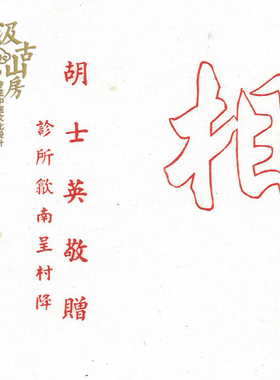 胡士英敬贈
診所歙南呈村降
汲古山房